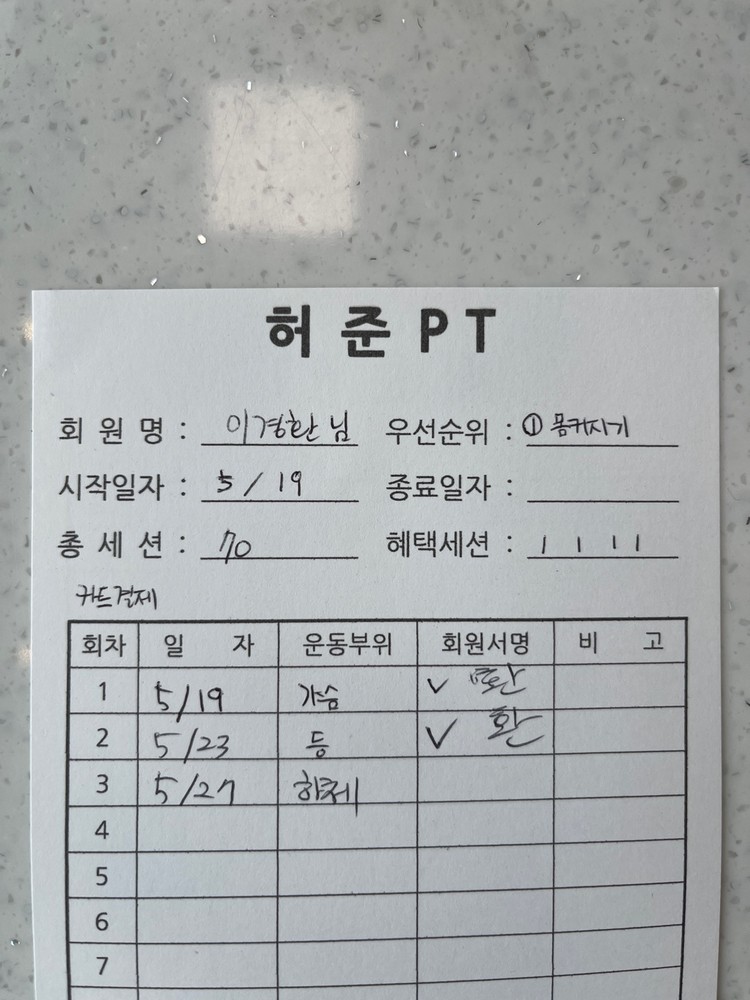 허준PT
회원명 : 이경환님 우선순위 : ① 몸커지기
시작일자 : 5/19 종료일자 :
총세션 : 70 혜택세션 : 1 1 1 1
카드결제
회차 일자 운동부위 회원서명 비고
1 5/19 가슴 ✓
2 5/23 등 ✓ 환
3 5/27 하체
4
5
6
7